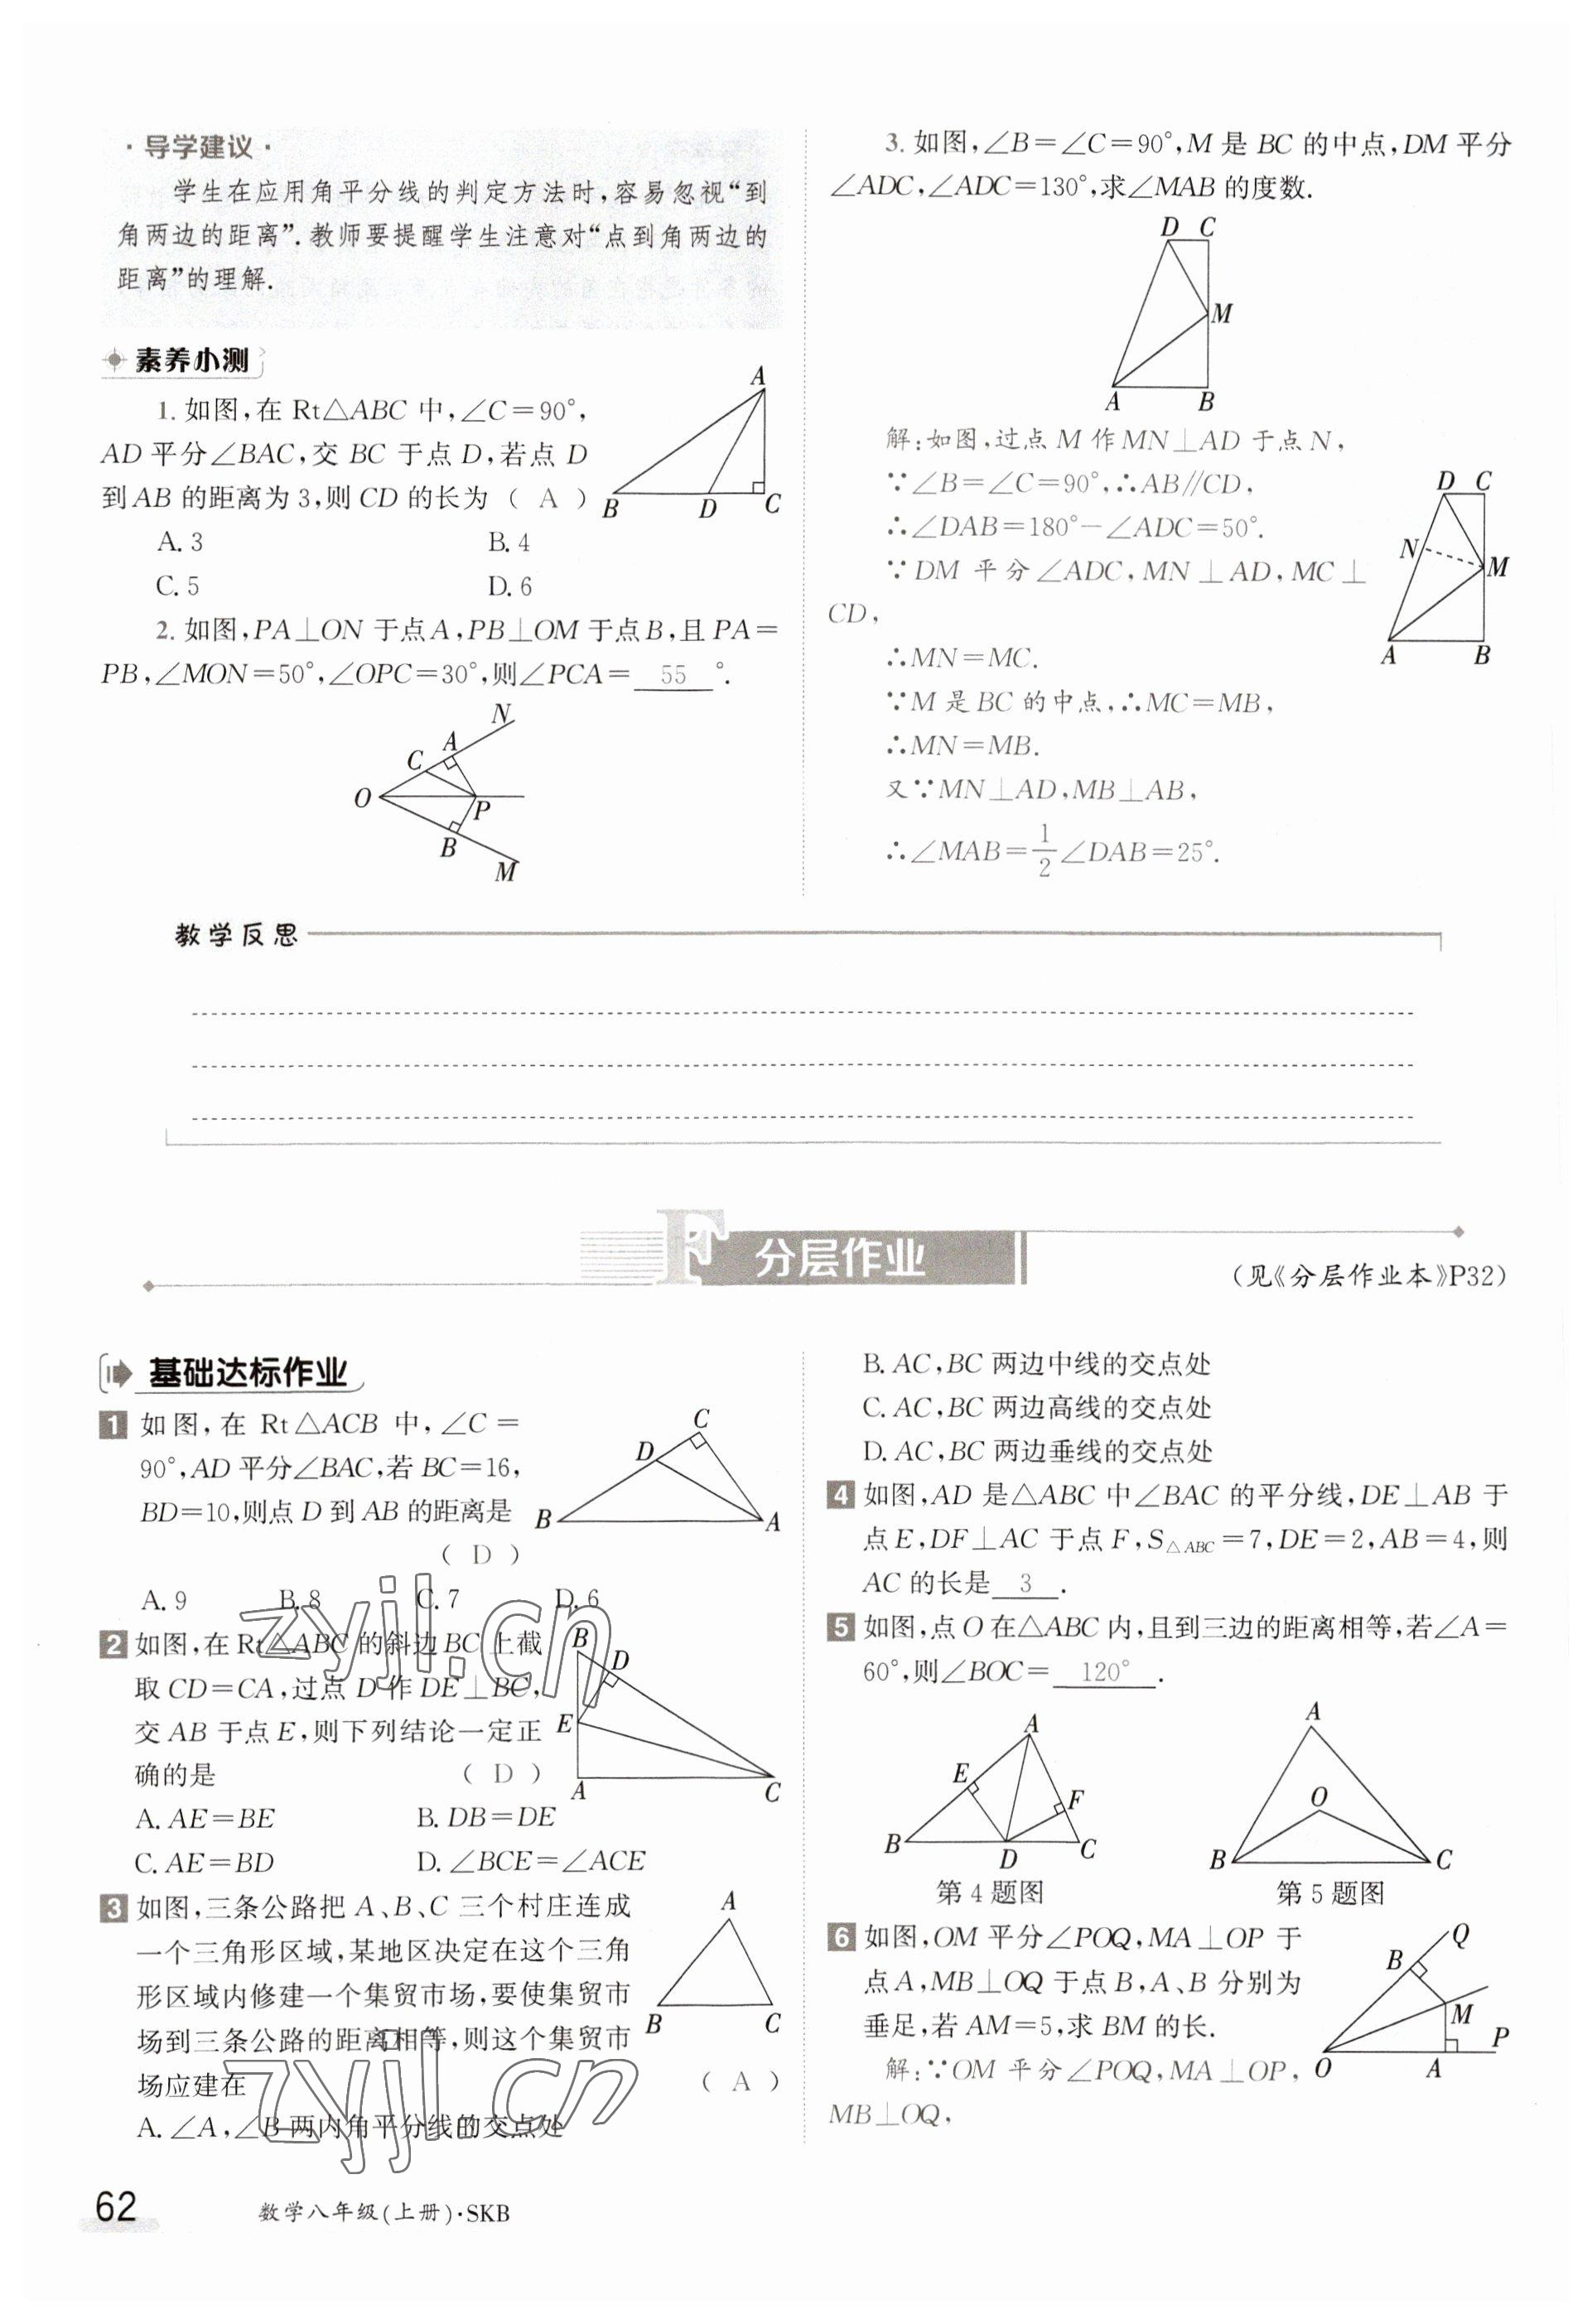 ·导学建议·
学生在应用角平分线的判定方法时,容易忽视“到
角两边的距离”.教师要提醒学生注意对“点到角两边的
距离”的理解.
素养小测
1.如图,在 Rt△ABC 中,∠C=90°,
AD 平分∠BAC,交 BC 于点 D,若点 D
到 AB 的距离为 3,则 CD 的长为 ( A )
A. 3 B. 4
C. 5 D. 6
A
B D C
2.如图,PA⊥ON 于点A,PB⊥OM 于点B,且 PA=
PB,∠MON=50°,∠OPC=30°,则∠PCA= 55 °.
N
A
C
O P
B
M
3.如图,∠B=∠C=90°,M 是 BC 的中点,DM 平分
∠ADC,∠ADC=130°,求∠MAB 的度数.
D C
M
A B
解:如图,过点 M 作 MN⊥AD 于点 N,
∵∠B=∠C=90°,∴AB∥CD,
∴∠DAB=180°-∠ADC=50°.
∵DM 平分∠ADC,MN⊥AD,MC⊥
CD,
∴MN=MC.
∵M 是 BC 的中点,∴MC=MB,
∴MN=MB.
又∵MN⊥AD,MB⊥AB,
∴∠MAB=1/2∠DAB=25°.
D C
N
M
A B
教学反思
F 分层作业
(见《分层作业本》P32)
基础达标作业
1 如图,在 Rt△ACB 中,∠C=
90°,AD 平分∠BAC,若 BC=16,
BD=10,则点 D 到 AB 的距离是
( D )
A. 9 B. 8 C. 7 D. 6
C
D
B A
2 如图,在 Rt△ABC 的斜边 BC 上截
取 CD=CA,过点 D 作 DE⊥BC,
交 AB 于点 E,则下列结论一定正
确的是 ( D )
A. AE=BE B. DB=DE
C. AE=BD D. ∠BCE=∠ACE
B
D
E
A C
3 如图,三条公路把 A、B、C 三个村庄连成
一个三角形区域,某地区决定在这个三角
形区域内修建一个集贸市场,要使集贸市
场到三条公路的距离相等,则这个集贸市
场应建在 ( A )
A. ∠A,∠B 两内角平分线的交点处
A
B C
B. AC,BC 两边中线的交点处
C. AC,BC 两边高线的交点处
D. AC,BC 两边垂线的交点处
4 如图,AD 是△ABC 中∠BAC 的平分线,DE⊥AB 于
点 E,DF⊥AC 于点 F,S△ABC=7,DE=2,AB=4,则
AC 的长是 3 .
5 如图,点 O 在△ABC 内,且到三边的距离相等,若∠A=
60°,则∠BOC= 120° .
A
E
F
B D C
第 4 题图
A
O
B C
第 5 题图
6 如图,OM 平分∠POQ,MA⊥OP 于
点 A,MB⊥OQ 于点 B,A、B 分别为
垂足,若 AM=5,求 BM 的长.
解:∵OM 平分∠POQ,MA⊥OP,
MB⊥OQ,
Q
B
M
P
O A
zyjl.cn
zyjl.cn
62 数学八年级(上册)·SKB